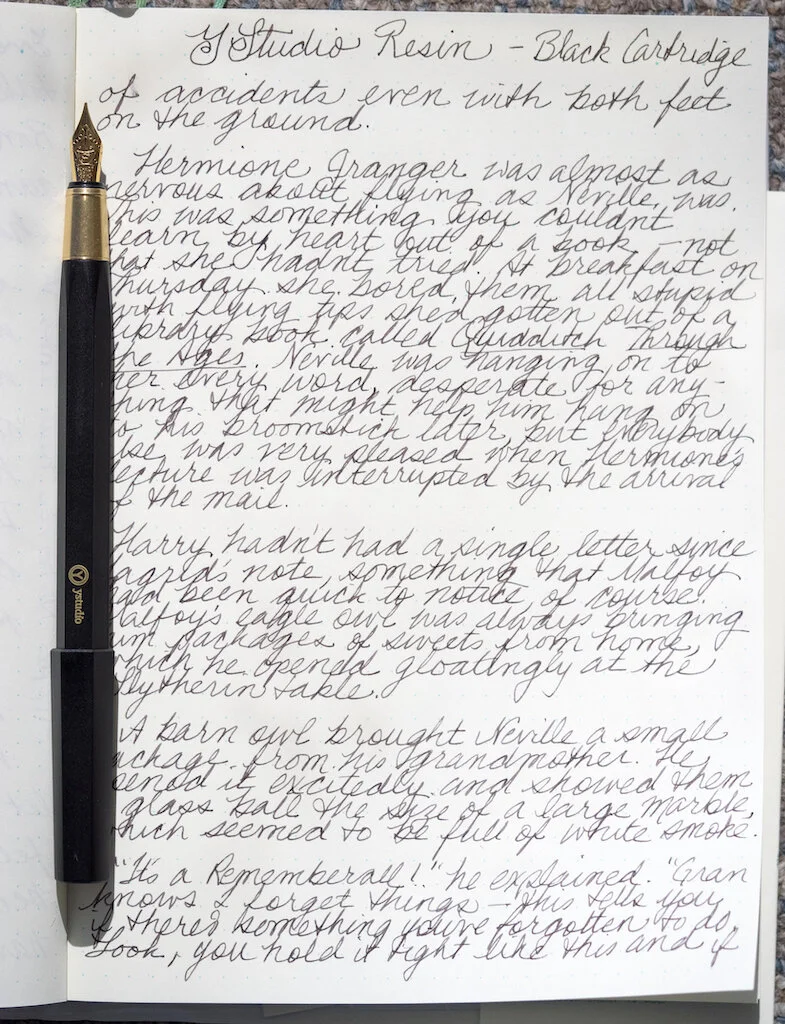 YStudio Resin – Black Cartridge
of accidents even with both feet
on the ground.
Hermione Granger was almost as
nervous about flying as Neville was.
This was something you couldn't
learn by heart out of a book – not
hat she hadn't tried. At breakfast on
Thursday she bored them all stupid
with flying tips she'd gotten out of a
library book called Quidditch Through
the Ages. Neville was hanging on to
her every word, desperate for any-
hing that might help him hang on
to his broomstick later, but everybody
lse was very pleased when Hermione's
lecture was interrupted by the arrival
f the mail.
Harry hadn't had a single letter since
agrid's note, something that Malfoy
had been quick to notice of course.
Malfoy's eagle owl was always bringing
him packages of sweets from home,
which he opened gloatingly at the
Slytherin table.
A barn owl brought Neville a small
ackage from his grandmother. He
pened it excitedly and showed them
glass ball the size of a large marble,
which seemed to be full of white smoke.
"It's a Rememberall!" he explained. "Gran
knows I forget things – this tells you
if there's something you've forgotten to do.
Look, you hold it tight like this and if
ystudio